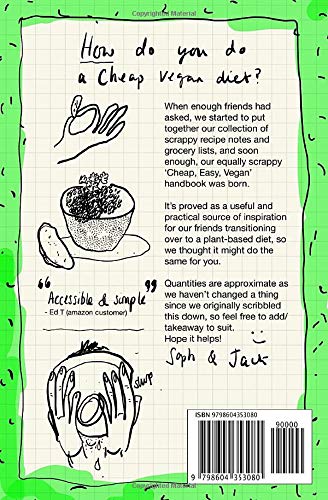 How do you do
a Cheap vegan diet?
When enough friends had
asked, we started to put
together our collection of
scrappy recipe notes and
grocery lists, and soon
enough, our equally scrappy
‘Cheap, Easy, Vegan’
handbook was born.
It’s proved as a useful and
practical source of inspiration
for our friends transitioning
over to a plant-based diet, so
we thought it might do the
same for you.
“Accessible & simple”
- Ed T (amazon customer)
Quantities are approximate as
we haven’t changed a thing
since we originally scribbled
this down, so feel free to add/
takeaway to suit.
Hope it helps!
Soph & Jack
slurp
ISBN 9798604353080
90000
9 798604 353080